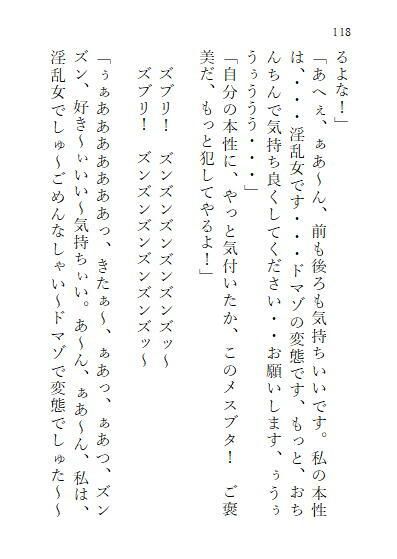 118
るよな！」
「あへぇ、ぁあ〜ん、前も後ろも気持ちいいです。私の本性
は、・・・淫乱女です・・・ドマゾの変態です、もっと、おち
んちんで気持ち良くしてください・・お願いします、ぅうぅ
うぅううう・・・」
「自分の本性に、やっと気付いたか、このメスブタ！　ご褒
美だ、もっと犯してやるよ！」
ズブリ！　ズンズンズンズンズンズッ〜
ズブリ！　ズンズンズンズンズンズッ〜
「ぅぁああああああああっ、きたぁ〜、ぁあっ、ぁあつ、ズン
ズン、好き〜ぃいい〜気持ちぃい。あ〜ん、ぁあ〜ん、私は、
淫乱女でしゅ〜ごめんなしゃい〜ドマゾで変態でしゅた〜〜